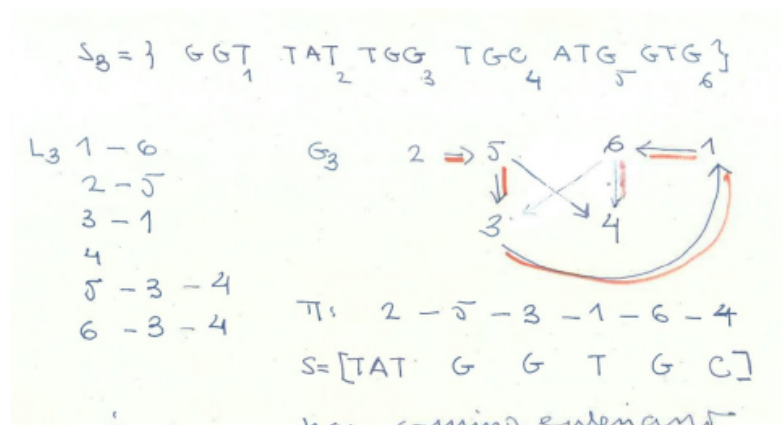 S3 = { GGT 1 TAT 2 TGG 3 TGC 4 ATG 5 GTG 6 }
L3 1 - 6
2 - 5
3 - 1
4
5 - 3 - 4
6 - 3 - 4
G3 2 5 6 1
3 4
π: 2 - 5 - 3 - 1 - 6 - 4
S = [TAT G G T G C]